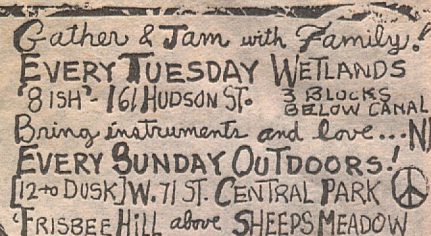 Gather & Jam with Family!
EVERY TUESDAY WETLANDS
'8 ISH'- 161 HUDSON ST. 3 BLOCKS BELOW CANAL
Bring instruments and love...
EVERY SUNDAY OUTDOORS!
[12 to DUSK] W. 71 ST. CENTRAL PARK
'FRISBEE HILL above SHEEPS MEADOW